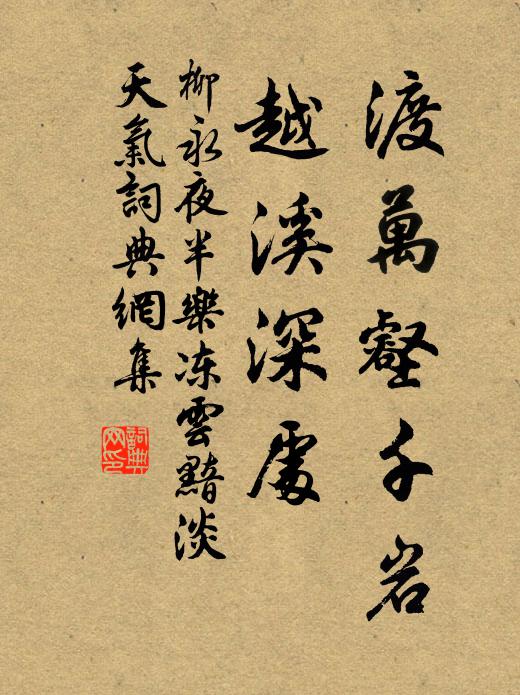 渡萬壑千岩
越溪深處
柳永夜半樂冻雲黯淡
天氣詞典網集
詞典
网印